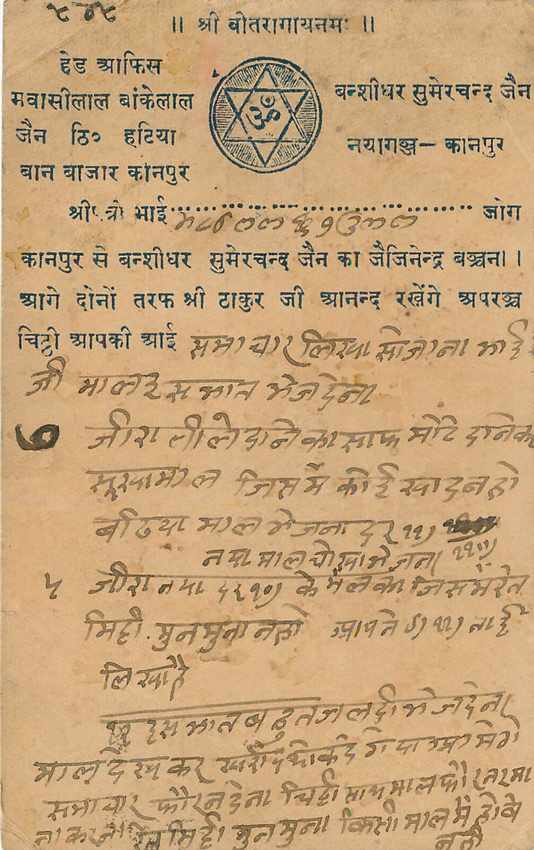 ॥ श्री वीतरागायनमः ॥
हेड आफिस
मवासीलाल बांकेलाल
जैन ठि० हटिया
बान बाजार कानपुर
ॐ
बन्शीधर सुमेरचन्द जैन
नयागञ्ज — कानपुर
श्री पत्री भाई जोग
कानपुर से बन्शीधर सुमेरचन्द जैन का जैजिनेन्द्र बञ्चना।
आगे दोनों तरफ श्री ठाकुर जी आनन्द रखेंगे अपरञ्च
चिट्ठी आपकी आई समाचार लिखा सो जाना भाई
जी माल इस भात भेज देना
७ जीरा लीले दाने का साफ मोटे दाने का
सूखा माल जिसमें कोई खाद न हो
बढिया माल भेजना दर ११)
नया माल चोखा भेजना
५ जीरा नया दर १०) के मेल का जिसमें रेत
मिट्टी मुनमुना न हो आपने
लिखा है
इस भात बहुत जलदी भेज देना
माल देख कर
समाचार फौरन देना चिट्ठी माल फौरन
मिट्टी मुनमुना किसी माल में होवे
नही